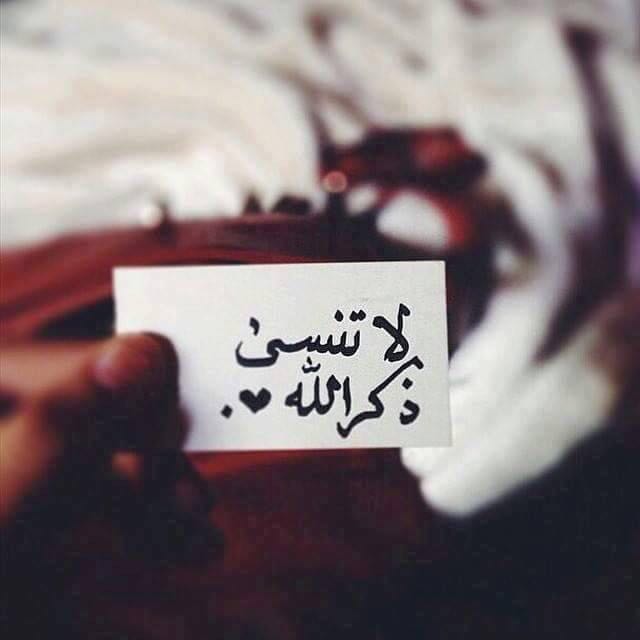 لا تنسىٰ
ذكر الله ♥.